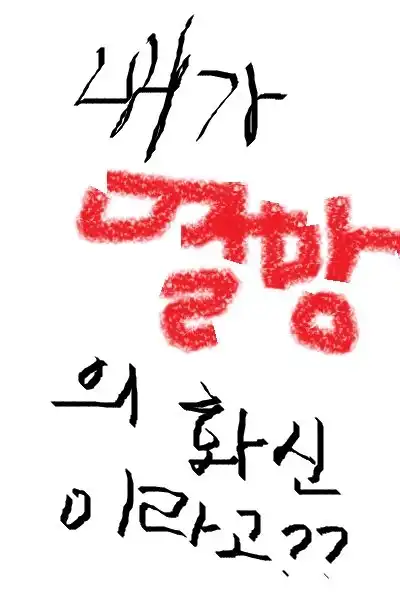 내가
열망
의 화신
이라고??